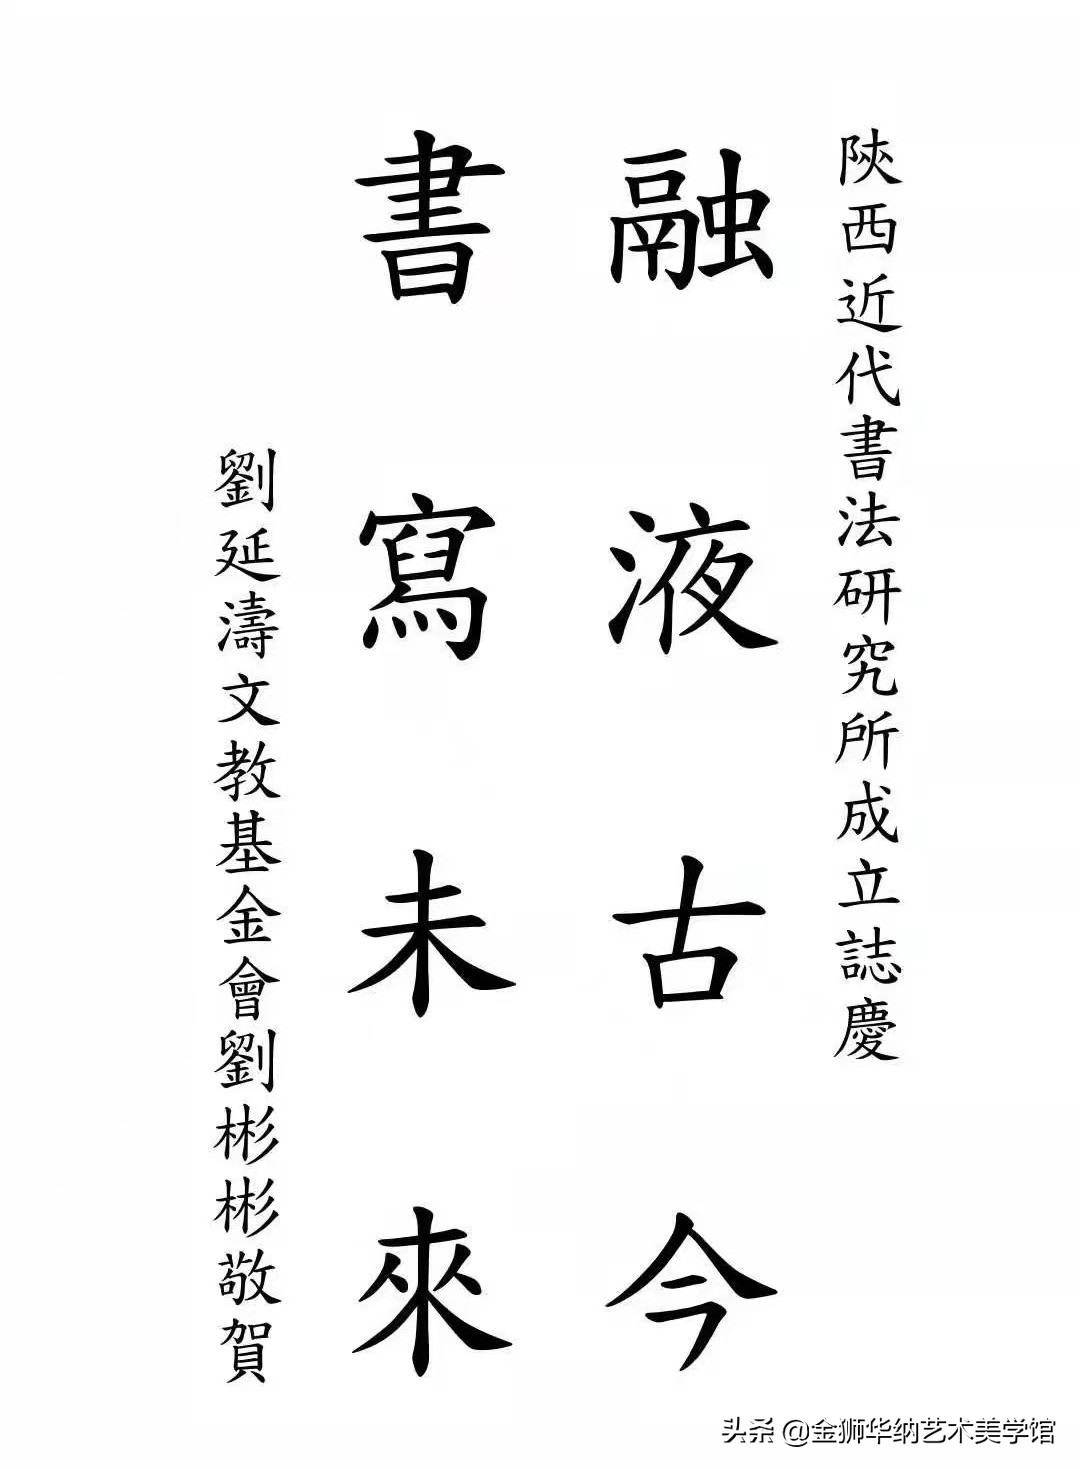 陝西近代書法研究所成立誌慶
融液古今
書寫未來
劉延濤文教基金會劉彬彬敬賀
头条 @金狮华纳艺术美学馆